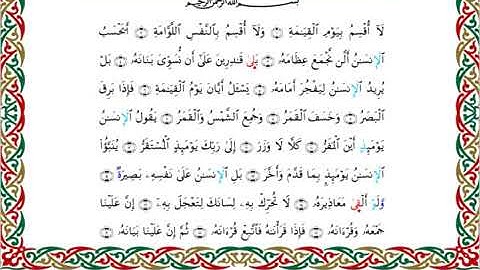 بسم الله الرحمن الرحيم
لَآ أُقْسِمُ بِيَوْمِ ٱلْقِيَٰمَةِ ۝ وَلَآ أُقْسِمُ بِٱلنَّفْسِ ٱللَّوَّامَةِ ۝ أَيَحْسَبُ
ٱلْإِنسَٰنُ أَلَّن نَّجْمَعَ عِظَامَهُۥ ۝ بَلَىٰ قَٰدِرِينَ عَلَىٰٓ أَن نُّسَوِّىَ بَنَانَهُۥ ۝ بَلْ
يُرِيدُ ٱلْإِنسَٰنُ لِيَفْجُرَ أَمَامَهُۥ ۝ يَسْـَٔلُ أَيَّانَ يَوْمُ ٱلْقِيَٰمَةِ ۝ فَإِذَا بَرِقَ
ٱلْبَصَرُ ۝ وَخَسَفَ ٱلْقَمَرُ ۝ وَجُمِعَ ٱلشَّمْسُ وَٱلْقَمَرُ ۝ يَقُولُ ٱلْإِنسَٰنُ
يَوْمَئِذٍ أَيْنَ ٱلْمَفَرُّ ۝ كَلَّا لَا وَزَرَ ۝ إِلَىٰ رَبِّكَ يَوْمَئِذٍ ٱلْمُسْتَقَرُّ ۝ يُنَبَّؤُا۟
ٱلْإِنسَٰنُ يَوْمَئِذٍۭ بِمَا قَدَّمَ وَأَخَّرَ ۝ بَلِ ٱلْإِنسَٰنُ عَلَىٰ نَفْسِهِۦ بَصِيرَةٌ ۝
وَلَوْ أَلْقَىٰ مَعَاذِيرَهُۥ ۝ لَا تُحَرِّكْ بِهِۦ لِسَانَكَ لِتَعْجَلَ بِهِۦٓ ۝ إِنَّ عَلَيْنَا
جَمْعَهُۥ وَقُرْءَانَهُۥ ۝ فَإِذَا قَرَأْنَٰهُ فَٱتَّبِعْ قُرْءَانَهُۥ ۝ ثُمَّ إِنَّ عَلَيْنَا بَيَانَهُۥ ۝